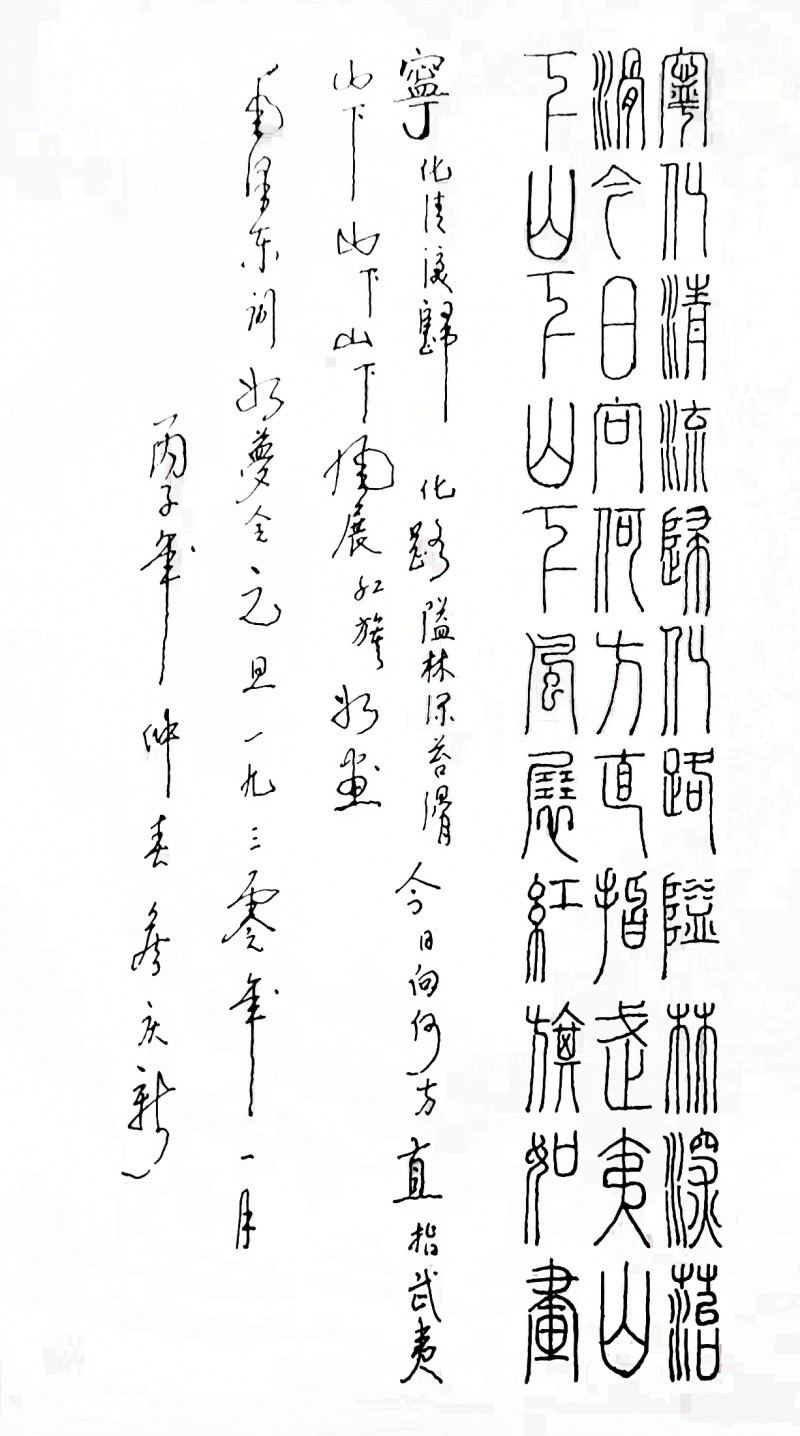 寧化清流歸化路隘林深苔
滑今日向何方直指武夷山
下山下山下風展紅旗如畫
寧化清流歸化路隘林深苔滑今日向何方直指武夷
山下山下山下風展红旗如畫
毛泽东词如夢令元旦一九三零年一月
丙子年仲春庆新